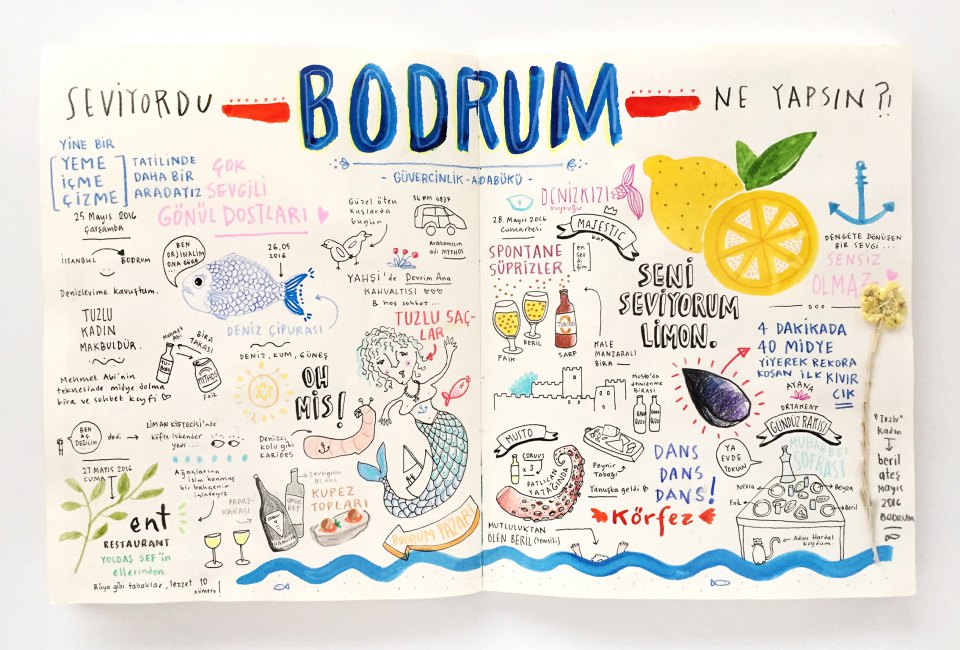 SEVİYORDU
BODRUM
NE YAPSIN?!
- GÜVERCİNLİK-ADABÜKÜ -
YİNE BİR
YEME
İÇME
ÇİZME
TATİLİNDE
DAHA BİR
ARADAYIZ
ÇOK
SEVGİLİ
GÖNÜL DOSTLARI
25 Mayıs 2016
Çarşamba
İSTANBUL
BODRUM
Denizlerime kavuştum.
TUZLU
KADIN
MAKBULDÜR.
Mehmet Abi
BİRA
TAKASI
Faik
Mehmet Abi'nin
teknesinde midye dolma
bira ve sohbet keyfi
BEN
AÇ
DEĞİLİM
dedi
LİMAN KÖFTECİSİ'nde
köfte iskender
yedi...
27 MAYIS 2016
CUMA
ent
RESTAURANT
YOLDAŞ ŞEF'in
ellerinden
Rüya gibi tabaklar, lezzet 10
numero
Ağaçlarına
isim konmuş
bir bahçenin
içindeyiz
PAPAZ-
KARASI
Sauvignon
BLANC
BEN
ORJİNALİM
ONA GÖRE
26.05
2016
DENİZ ÇİPURASI
DENİZ, KUM, GÜNEŞ
OH
MİS!
Denizci
kolu gibi
KARİDES
KUPEZ
TOPLARI
Güzel öten
kuşlarda
bugün
34 PM 4837
Arabamızın
adı MYTHOS
YAHŞİ'de Devrim Ana
KAHVALTISI
& hoş sohbet...
TUZLU SAÇ-
LAR
BODRUM YAZARI
DENİZKIZI
kuyruğu
28. Mayıs 2016
Cumartesi
MAJESTIC
bar
en
sev
di
ğim
SPONTANE
SÜPRİZLER
FAİK
BERİL
SARP
KALE
MANZARALI
BİRA
SENİ
SEVİYORUM
LİMON.
DENGEYE DÖNÜŞEN
BİR SEVGİ...
SENSİZ
OLMAZ
4 DAKİKADA
40 MİDYE
YİYEREK REKORA
KOŞAN İLK KIVIR
CIK
Musto'da
demlenme
BİRASI
MUSTO
CORVUS
x3
PATLICAN
YATAĞINDA
Peynir
Tabağı
Yanuska geldi
MUTLULUKTAN
ÖLEN BERİL (temsili)
DANS
DANS
DANS!
Körfez
AYANA
ORTAMENT
GÜNDÜZ RAKISI
MUHABBET
SOFRASI
YA
EVDE
YOKSAN
Nefise
Beyza
Faik
Beril
Adını Hardal
koydum
"Tuzlu"
Kadın
beril
ateş
Mayıs
2016
BODRUM